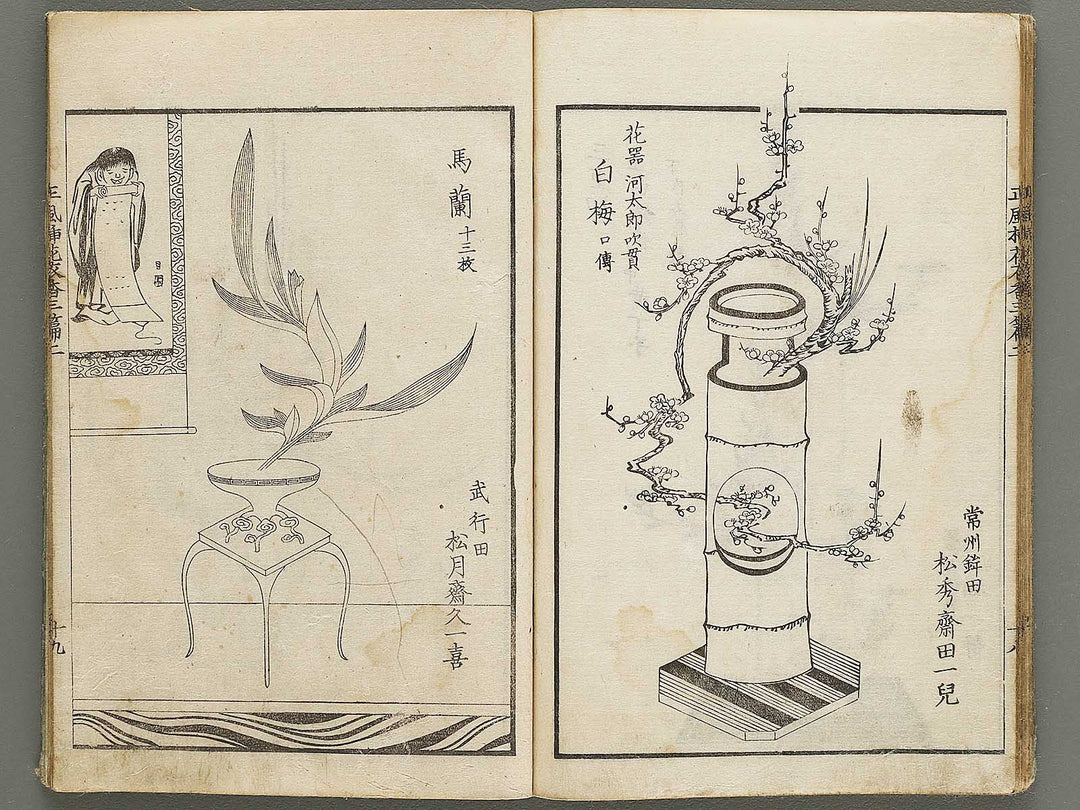 花器 河太郎吹貫
白梅 口傳
常州鉾田
松秀齋田一兒
馬蘭 十三枚
武行田
松月齋久一喜
十九